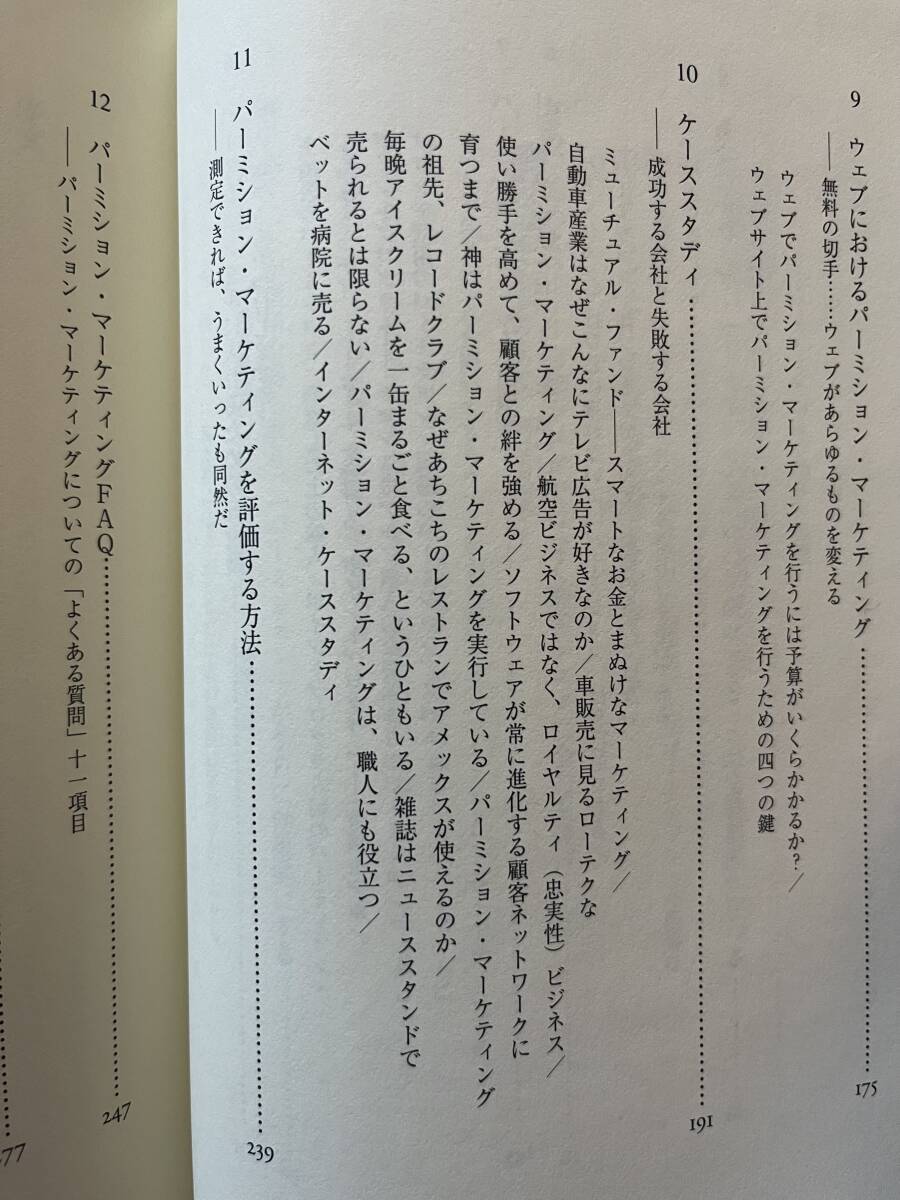 9 ウェブにおけるパーミション・マーケティング……175
――無料の切手……ウェブがあらゆるものを変える
ウェブでパーミション・マーケティングを行うには予算がいくらかかるか?／
ウェブサイト上でパーミション・マーケティングを行うための四つの鍵
10 ケーススタディ……191
――成功する会社と失敗する会社
ミューチュアル・ファンド――スマートなお金とまぬけなマーケティング／
自動車産業はなぜこんなにテレビ広告が好きなのか／車販売に見るローテクな
パーミション・マーケティング／航空ビジネスではなく、ロイヤルティ（忠実性）ビジネス／
使い勝手を高めて、顧客との絆を強める／ソフトウェアが常に進化する顧客ネットワークに
育つまで／神はパーミション・マーケティングを実行している／パーミション・マーケティング
の祖先、レコードクラブ／なぜあちこちのレストランでアメックスが使えるのか／
毎晩アイスクリームを一缶まるごと食べる、というひともいる／雑誌はニューススタンドで
売られるとは限らない／パーミション・マーケティングは、職人にも役立つ／
ベットを病院に売る／インターネット・ケーススタディ
11 パーミション・マーケティングを評価する方法……239
――測定できれば、うまくいったも同然だ
12 パーミション・マーケティングFAQ……247
――パーミション・マーケティングについての「よくある質問」十一項目